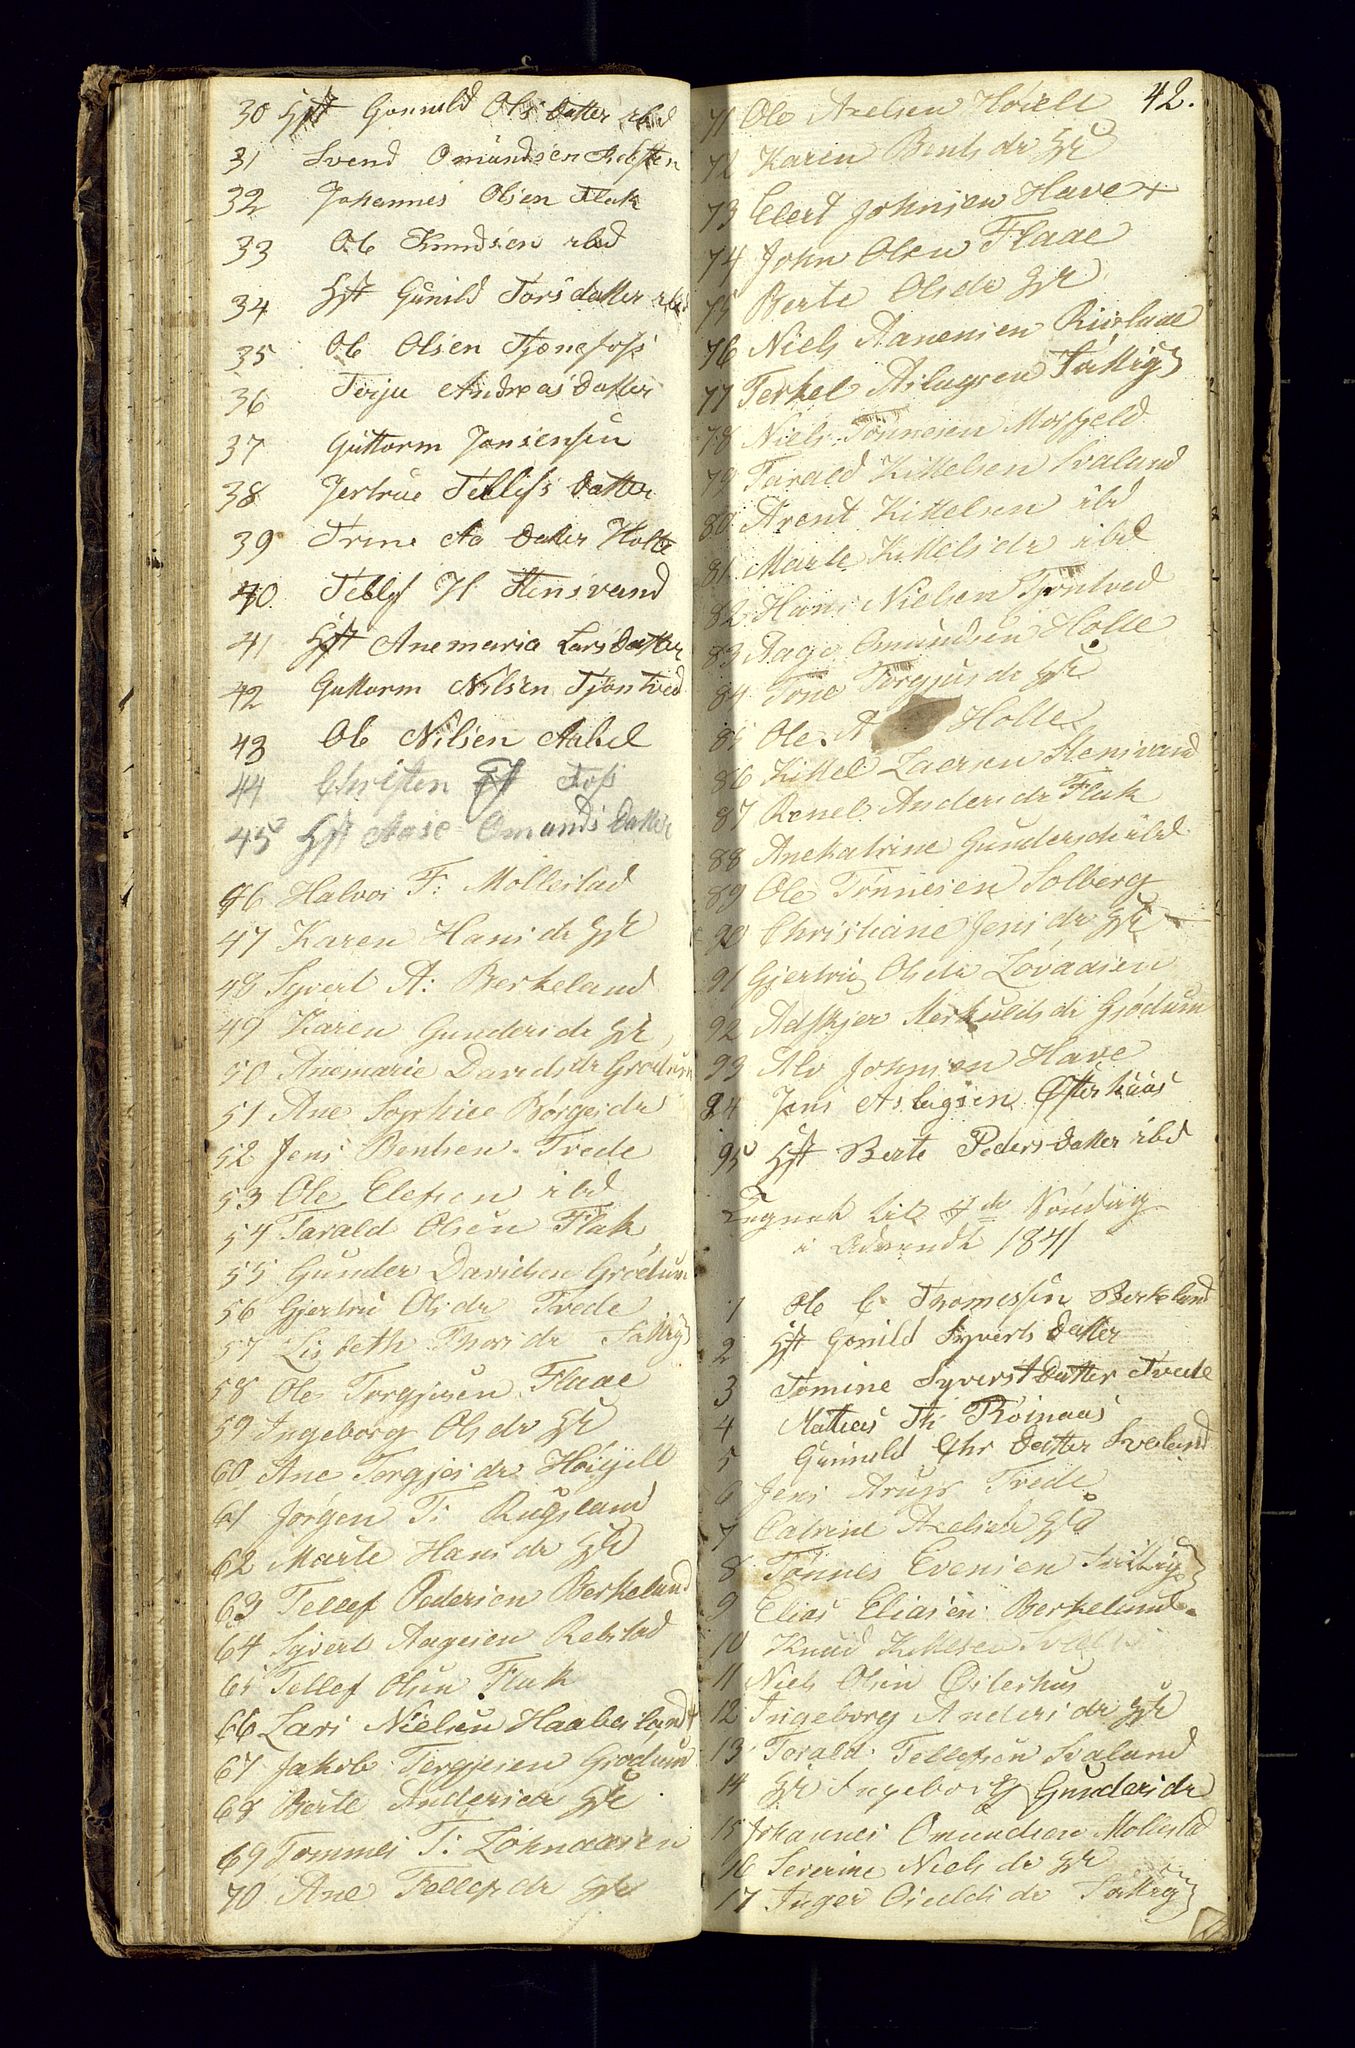 30 Hst Gonneld Ols Datter ibd
31 Svend Omundsen
32 Johannes Olsen Flak
33 Ole Knudsen ibd
34 Hst Gunild Torsdatter ibd
35 Ole Olsen Tjønefoss
36 Terju Andreas Datter
37 Guttorm Jonsensen
38 Jertrue Tellefs Datter
39 Trine Aa Datter Holte
40 Tellef H. Stensvand
41 Hst Anemaria Lars Datter
42 Guttorm Nilsen Tjøntved
43 Ole Nilsen Aabel
44 Christen Foss
45 Hst Aase Omunds Datter
46 Halvor F: Mollestad
47 Karen Hansdr Hst
48 Syvert A: Berkeland
49 Karen Gundersdr Hst
50 Anemarie Davidsdr Grødum
51 Ane Sophiee Børgesdr
52 Jens Bentsen Tvede
53 Ole Elefsen ibd
54 Tarald Olsen Flak
55 Gunder Davidsen Grødum
56 Gjertru Olsdr Tvede
57 Lisbeth Thorsdr
58 Ole Torgjusen Flaae
59 Ingeborg Olsdr Hst
60 Ane Torgjesdr Høigelt
61 Jørgen T: Rugsland
62 Marte Hansdr Hst
63 Tellef Pedersen Berkeland
64 Syvert Aagesen Rebstad
65 Tellef Olsen Flak
66 Lars Nielsen Haabesland
67 Jakob Tergjesen Grødum
68 Berte Andersen Hst
69 Tommes T:
70 Ane Tellefsdr Hst
42.
71 Ole Axelsen Høielt
72 Karen Bentsdr Hst
73 Elert Johnsen Have +
74 John Olsen Flaae
75 Berte Olsdr Hst
76 Niels Aanensen
77 Terkel Aslagsen
78 Niels Tønnesen Mosfjeld
79 Tarald Kittelsen Svaland
80 Arent Kittelsen ibd
81 Marte Kittelsdr ibd
82 Hans Nielsen Tjøntved
83 Aage Omundsen Holte
84 Tone Torgjusdr Hst
85 Ole A Holte
86 Kittel Larsen Stensvand
87 Ronel Andersdr Flak
88 Anekatrine Gundersdr ibd
89 Ole Tønnesen Solberg
90 Christiane Jensdr Hst
91 Gjertru Olsdr
92 Adskjer Aerkuldsdr Grødum
93 Alv Johnsen Have
94 Jens Aslagsen Østerhuus
95 Hst Berte Peders Datter ibd
Tegnet til 4de Søndag
i Advendt 1841
1 Ole C. Thomessen Berkeland
2 Hst Gonild Syverts Datter
3 Tomine Syverst Datter Tvede
4 Matias Th: Røinaas
5 Gunneld Chr Datter Svaland
6 Jens Tvede
7 Catrine Axelsdr Hst
8 Tønnes Evensen
9 Elias Eliasen Berkeland
10 Knud Kittelsen
11 Niels Olsen Østerhus
12 Ingeborg Andersdr Hst
13 Torald Tellefsen Svaland
14 Hst Ingeborg Gundersdr
15 Johannes Omundsen Mollestad
16 Severine Nielsdr Hst
17 Inger